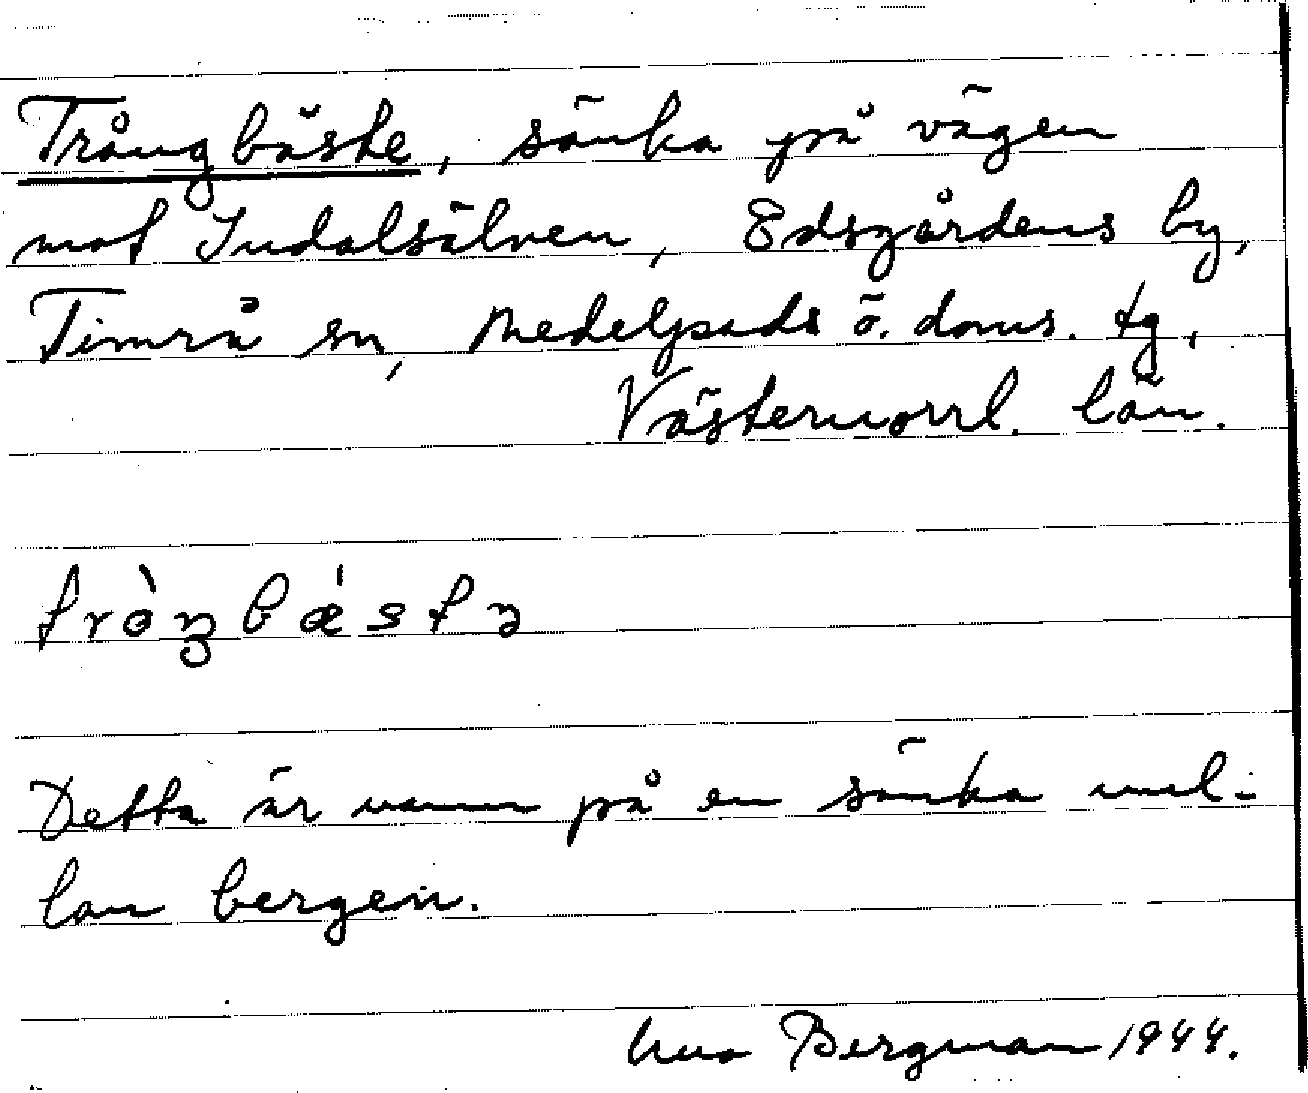 Trångbäste, sänka på vägen
mot Indalsälven, Edsgårdens by,
Timrå sn, Medelpads ö. doms. tg,
Västernorrl. län.
Detta är namn på en sänka mel-
lan bergen.
Uno Bergman 1944.